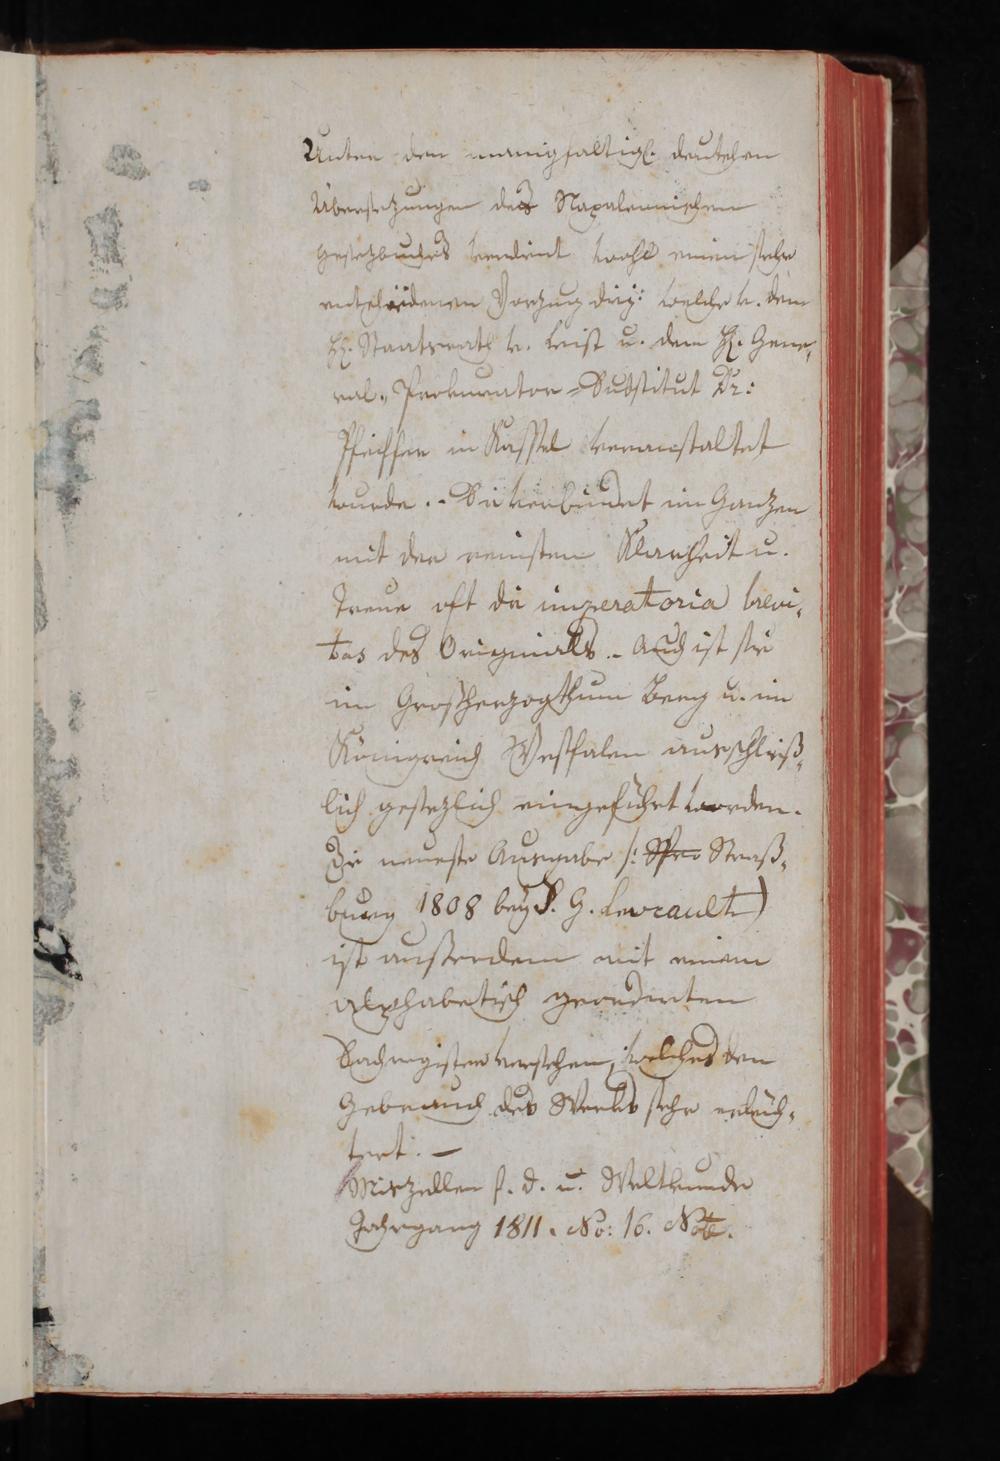 Unter den mannigfaltigl. deutschen
Übersetzungen des Napoleonischen
Gesetzbuches verdient wohl einen sehr
entschiedenen Vorzug diej: welche v. dem
H. Staatsrath v. Leist u. dem H. Gene,
ral„ Prokurator = Substitut Dr:
Pfeiffer in Kassel veranstaltet
wurde. - Sie verbindet im Ganzen
mit der reinsten Klarheit u.
Treue oft die imperatoria brevi,
tas des Originals. - Auch ist sie
im Großherzogthum Berg u. im
Königreich Westfalen ausschließ,
lich gesetzlich eingeführt worden.
Die neueste Ausgabe /: Straß,
burg 1808 bey F. G. Levrault)
ist außerdem mit einem
alphabetisch geordneten
Sachregister versehen, welches den
Gebrauch des Werks sehr erleich,
tert. —
Miszellen f. d. n. Weltkunde
Jahrgang 1811. No: 16. Note.